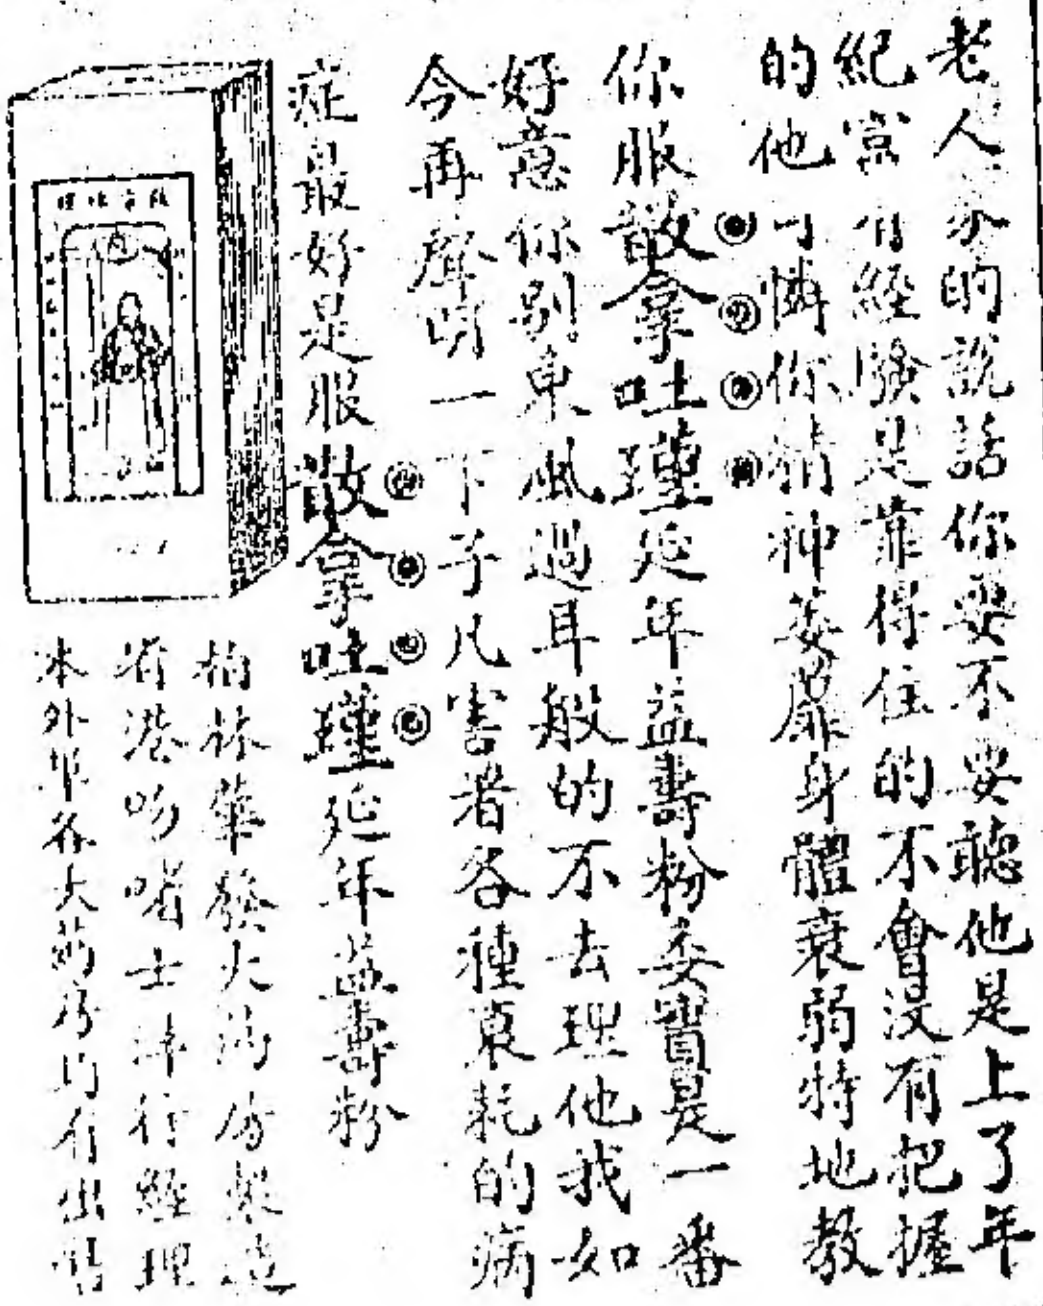 老人家的說話你要不要聽他是上了年
紀當有經驗是靠得住的不會沒有把握
的他可憐你精神萎靡身體衰弱特地教
你服散拿吐瑾延年益壽粉委實是一番
好意你别東風過耳般的不去理他我如
今再聲明一下子凡害着各種衰耗的病
症最好是服散拿吐瑾延年益壽粉
柏林華發大药房製造
省港吻喏士洋行經理
本外埠各大药房均有出售